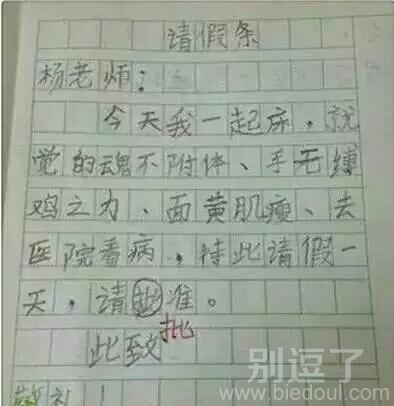 请假条
杨老师：
今天我一起床，就
觉的魂不附体、手无缚
鸡之力、面黄肌瘦、去
医院看病，特此请假一
天，请批准。
批
此致
敬礼！
别逗了
www.biedoul.com